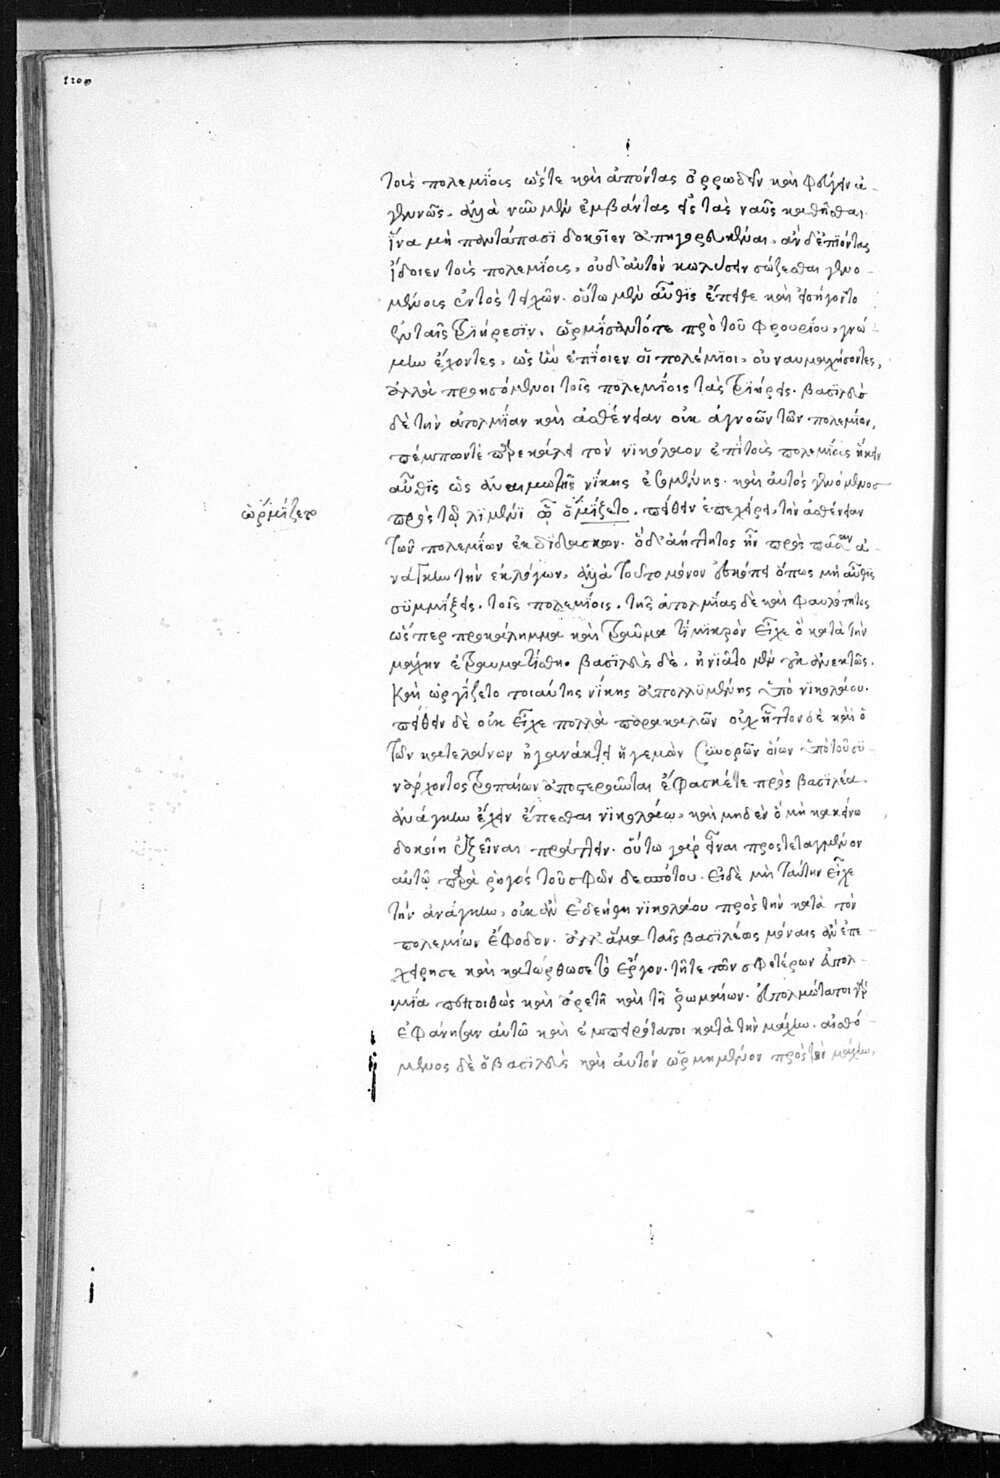 τοῖς πολεμίοις ὥστε καὶ ἀπόντας ὀρρωδεῖν καὶ φεύγειν ἀ-
γεννῶς. ἀλλὰ νῦν μὲν ἐμβάντας εἰς τὰς ναῦς καθῆσθαι.
ἵνα μὴ παντάπασι δοκοῖεν ἀπηγορευκέναι. ἂν δ' ἐπιόντας
ἴδοιεν τοὺς πολεμίους, οὐδ' αὐτὸν κωλύσειν σώζεσθαι γενο-
μένους ἐντὸς τειχῶν. οὕτω μὲν αὖθις ἔπειθε καὶ
ἐν ταῖς τριήρεσιν. πρὸ τοῦ φρουρίου, γνώ-
μην ἔχοντες, ὡς ἂν ἐπίοιεν οἱ πολέμιοι, οὐ ναυμαχήσοντες,
ἀλλὰ προησόμενοι τοῖς πολεμίοις τὰς τριήρεις. βασιλεὺς
δὲ τὴν ἀτολμίαν καὶ ἀσθένειαν οὐκ ἀγνοῶν τῶν πολεμίων,
πέμπων τὲ παρεκάλει τὸν νικόλαον ἐπὶ τοὺς πολεμίους ἥκειν
αὖθις ὡς ἀναιμωτὶ τῆς νίκης ἐσομένης. καὶ αὐτὸς γενόμενος
πρὸς τῷ λιμένι ᾧ ὁρμίζετο. πείθειν ἐπεχείρει, τὴν ἀσθένειαν
ὡρμίζετο
τῶν πολεμίων ἐκδιδάσκων. ὁ δ' ἀήττητος ἦν πρὸς πᾶσαν ἀ-
νάγκην τὴν ἐκ λόγων, ἀλλὰ τοῦτο μόνον ἐσκόπει ὅπως μὴ αὖθις
συμμίξῃ τοῖς πολεμίοις. τῆς ἀτολμίας δὲ καὶ φαυλότητος
ὥσπερ προκάλημμα καὶ τραῦμα τὶ μικρὸν εἶχε ὃ κατὰ τὴν
μάχην ἐτραυματίσθη. βασιλεὺς δὲ. ἠνιᾶτο μὲν οὐκ ἀνεκτῶς.
καὶ ὠργίζετο τοιαύτης νίκης ἀπολλυμένης ὑπὸ νικολάου.
πείθειν δὲ οὐκ εἶχε πολλὰ παρακαλῶν οὐχ ἧττον δὲ καὶ ὁ
τῶν κατελάνων ἠγανάκτει ἡγεμὼν συνορῶν οἵων ὑπὸ τοῦ συ-
νάρχοντος τροπαίων ἀποστεροῦνται ἔφασκέ τε πρὸς βασιλέα
ἀνάγκην ἔχειν ἕπεσθαι νικολάῳ, καὶ μηδὲν ὃ μὴ κακείνῳ
δοκοίη ἐξεῖναι πράττειν. οὕτω γὰρ εἶναι προστεταγμένον
αὐτῷ παρὰ ῥηγὸς τοῦ σφῶν δεσπότου. εἰ δὲ μὴ ταύτην εἶχε
τὴν ἀνάγκην, οὐκ ἂν ἐδεήθη νικολάου πρὸς τὴν κατὰ τῶν
πολεμίων ἔφοδον. ἀλλ' ἅμα ταῖς βασιλέως μόναις ἂν ἐπε-
χείρησε καὶ κατώρθωσε τὸ ἔργον. τῇ τε τῶν σφετέρων
πεποιθὼς καὶ ἀρετῇ καὶ τῇ ῥωμαίων. εὐτολμότατοι γὰρ
ἐφάνησαν αὐτῷ καὶ ἐμπειρότατοι κατὰ τὴν μάχην. αἰσθό-
μενος δὲ ὁ βασιλεὺς καὶ αὐτὸν ὡρμημένον πρὸς τὴν μάχην,